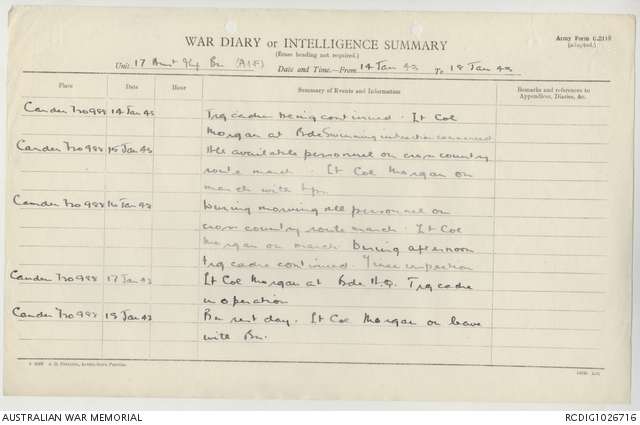 Army Form C.2118
(adapted.)
WAR DIARY or INTELLIGENCE SUMMARY
(Erase heading not required.)
Unit 17 Bn (AIF) Date and Time—From 14 Jan 43 To 18 Jan 43
Place Date Hour Summary of Events and Information Remarks and references to Appendices, Diaries, &c.
Camden 720988 14 Jan 43 Trg cadre being continued. Lt Col
Morgan at Bde Swimming instruction
Camden 720988 15 Jan 43 All available personnel on cross country
route march. Lt Col Morgan on
march with
Camden 720988 16 Jan 43 During morning all personnel on
cross country route march. Lt Col
Morgan on march During afternoon
trg cadre continued. inspection
Camden 720988 17 Jan 43 Lt Col Morgan at Bde H.Q. Trg cadre
in operation
Camden 720988 18 Jan 43 Bn rest day. Lt Col Morgan on leave
with Bn.
AUSTRALIAN WAR MEMORIAL
RCDIG1026716